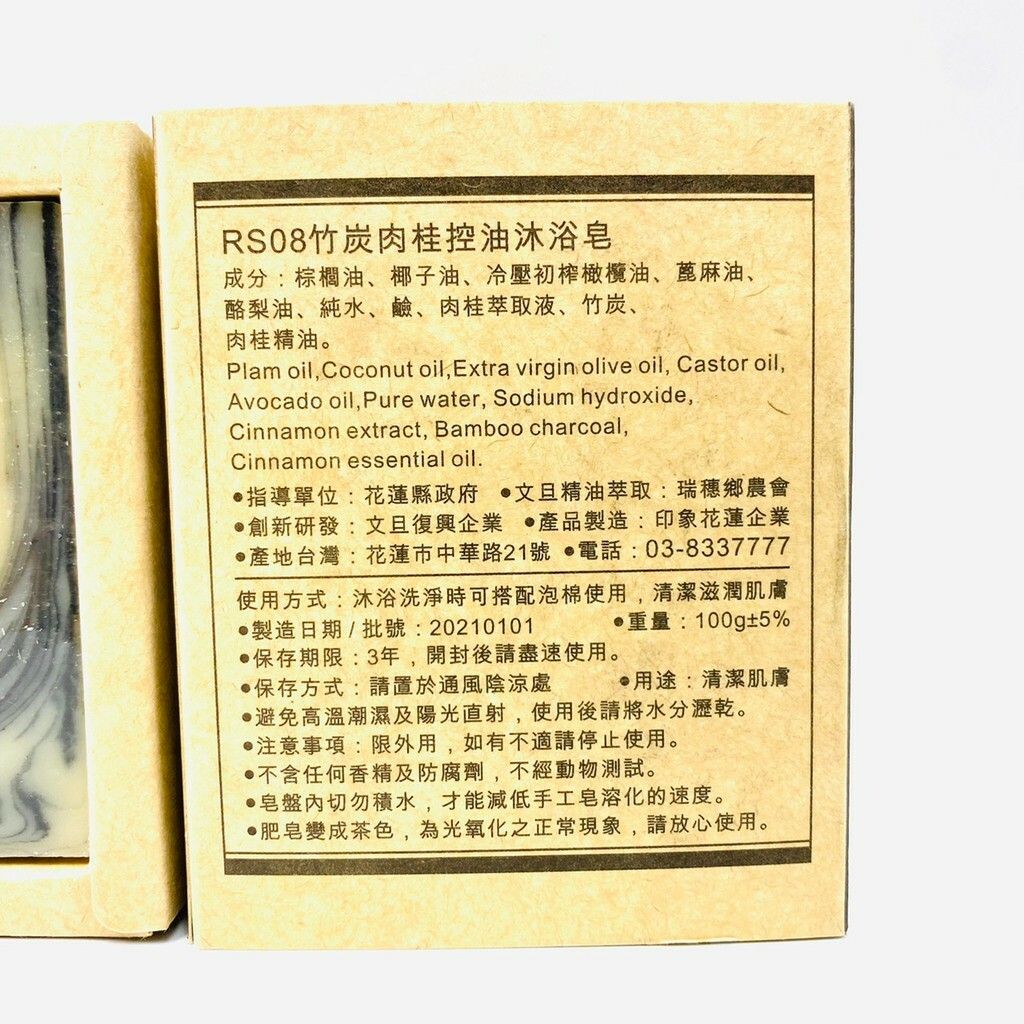 RS08竹炭肉桂控油沐浴皂
成分：棕櫚油、椰子油、冷壓初榨橄欖油、蓖麻油、
酪梨油、純水、鹼、肉桂萃取液、竹炭、
肉桂精油。
Plam oil,Coconut oil,Extra virgin olive oil, Castor oil,
Avocado oil,Pure water, Sodium hydroxide,
Cinnamon extract, Bamboo charcoal,
Cinnamon essential oil.
●指導單位：花蓮縣政府 ●文旦精油萃取：瑞穗鄉農會
●創新研發：文旦復興企業 ●產品製造：印象花蓮企業
●產地台灣：花蓮市中華路21號 ●電話：03-8337777
使用方式：沐浴洗淨時可搭配泡棉使用，清潔滋潤肌膚
●製造日期/批號：20210101 ●重量：100g±5%
●保存期限：3年，開封後請盡速使用。
●保存方式：請置於通風陰涼處 ●用途：清潔肌膚
●避免高溫潮濕及陽光直射，使用後請將水分瀝乾。
●注意事項：限外用，如有不適請停止使用。
●不含任何香精及防腐劑，不經動物測試。
●皂盤內切勿積水，才能減低手工皂溶化的速度。
●肥皂變成茶色，為光氧化之正常現象，請放心使用。